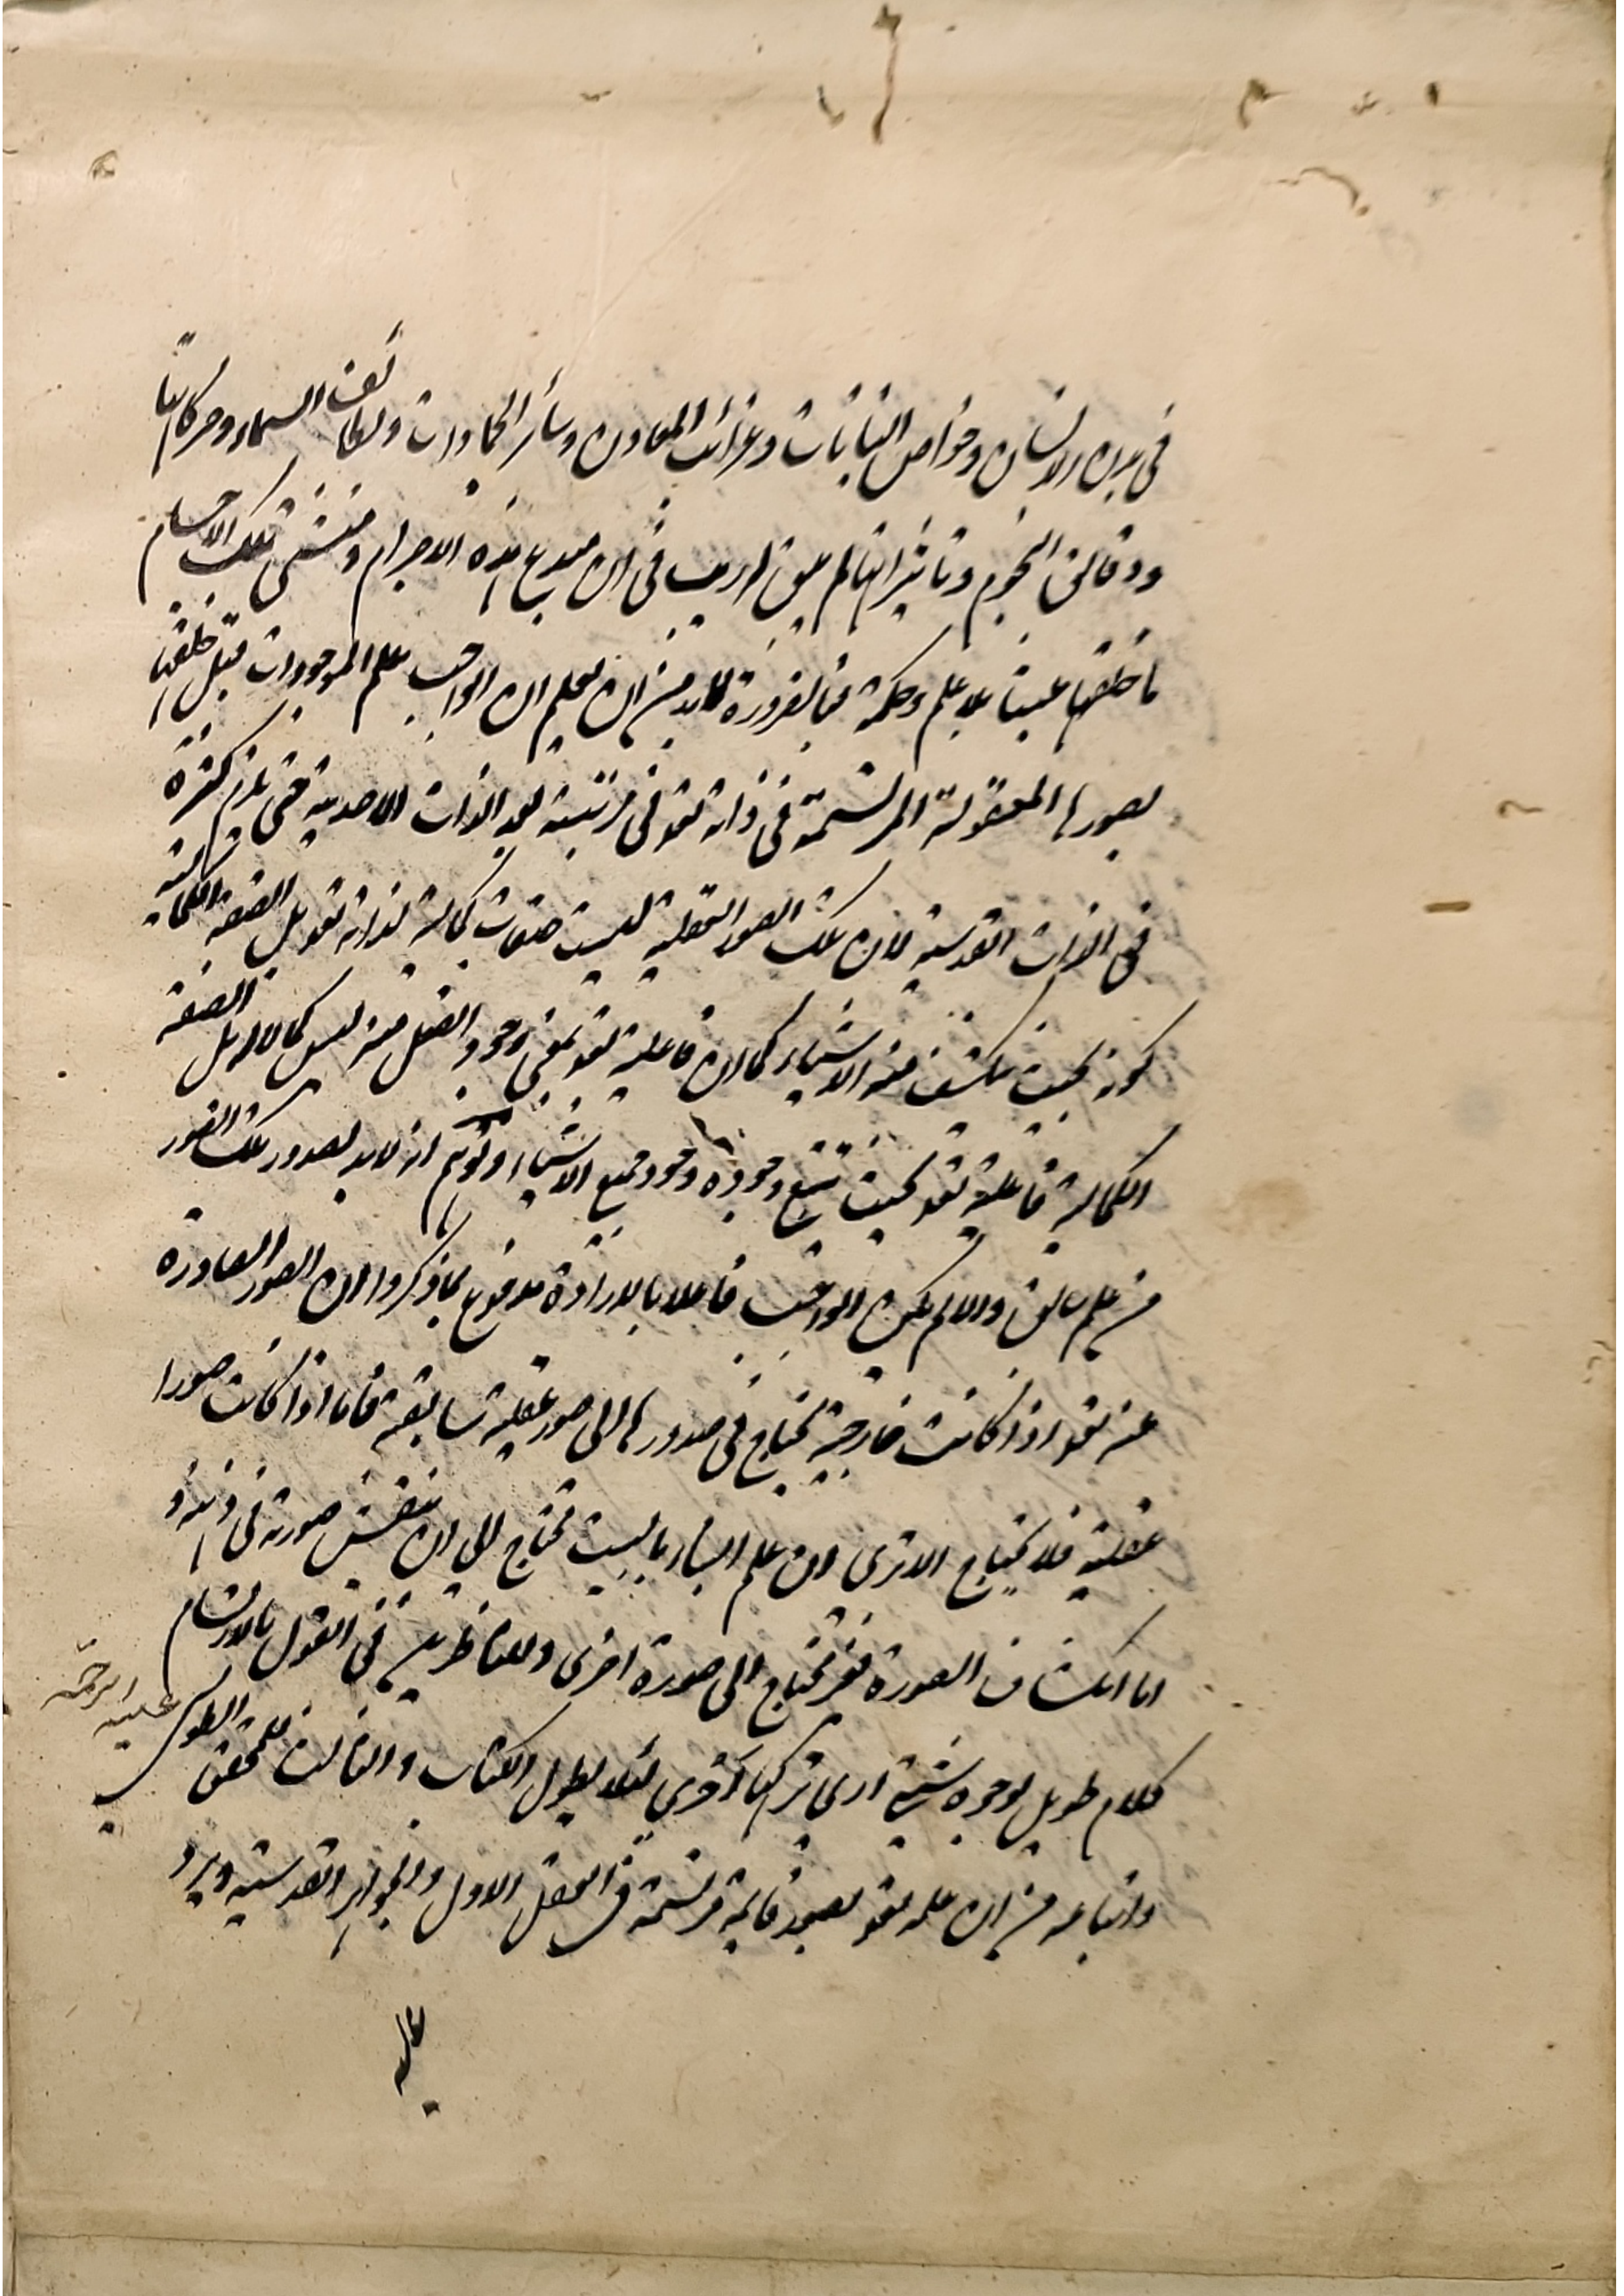 في بدن الانسان وخواص النباتات وغرائب المعادن وسائر الجمادات ولطائف السماء وحركاتها
ودقائق النجوم وتاثيراتها لم يبق له ريب في ان مبدع هذه الاجرام ومنشى تلك الاجسام
ما خلقها عبثا بلا علم وحكمة فبالضرورة لابد من ان يعلم ان الواجب يعلم الموجودات قبل خلقها
بصورها المعقولة المرتسمة في ذاته تعو في مرتبة بعد الذات الاحدية حتى يلزم كثرة
في الذات القدسية لان تلك الصور العقلية ليست صفات كمالية لذاته تعو بل الصفة الكمالية
كونه بحيث ينكشف منه الاشياء كما ان فاعلية تعو بمعنى وجود الفعل منه ليس كمالا له بل الصفة
الكمالية فاعلية تعو بحيث يتبع وجوده وجود جميع الاشياء وتوهم انه لابد لصدور تلك الصور
من علم سابق والا لم يكن الواجب فاعلا بالارادة مدفوع بما ذكروا ان الصور الصادرة
عنه تعو اذا كانت خارجية يحتاج في صدورها الى صور عقلية سابقة فاما اذا كانت صورا
عقلية فلا يحتاج الا ترى ان علم البناء بالبيت تحتاج الى ان ينتقش صورته في ذهنه و
اما انكشاف الصورة فغير محتاج الى صورة اخرى وللناظرين في القول بالارتسام
كلام طويل لوجوه شتى ارى تركها احرى لئلا يطول الكتاب والثالث للمحقق الطوسي عليه الرحمة
واتباعه من ان علمه تعو بصور قايمة مرتسمة في العقل الاول والجواهر القدسية ويرد
عليه